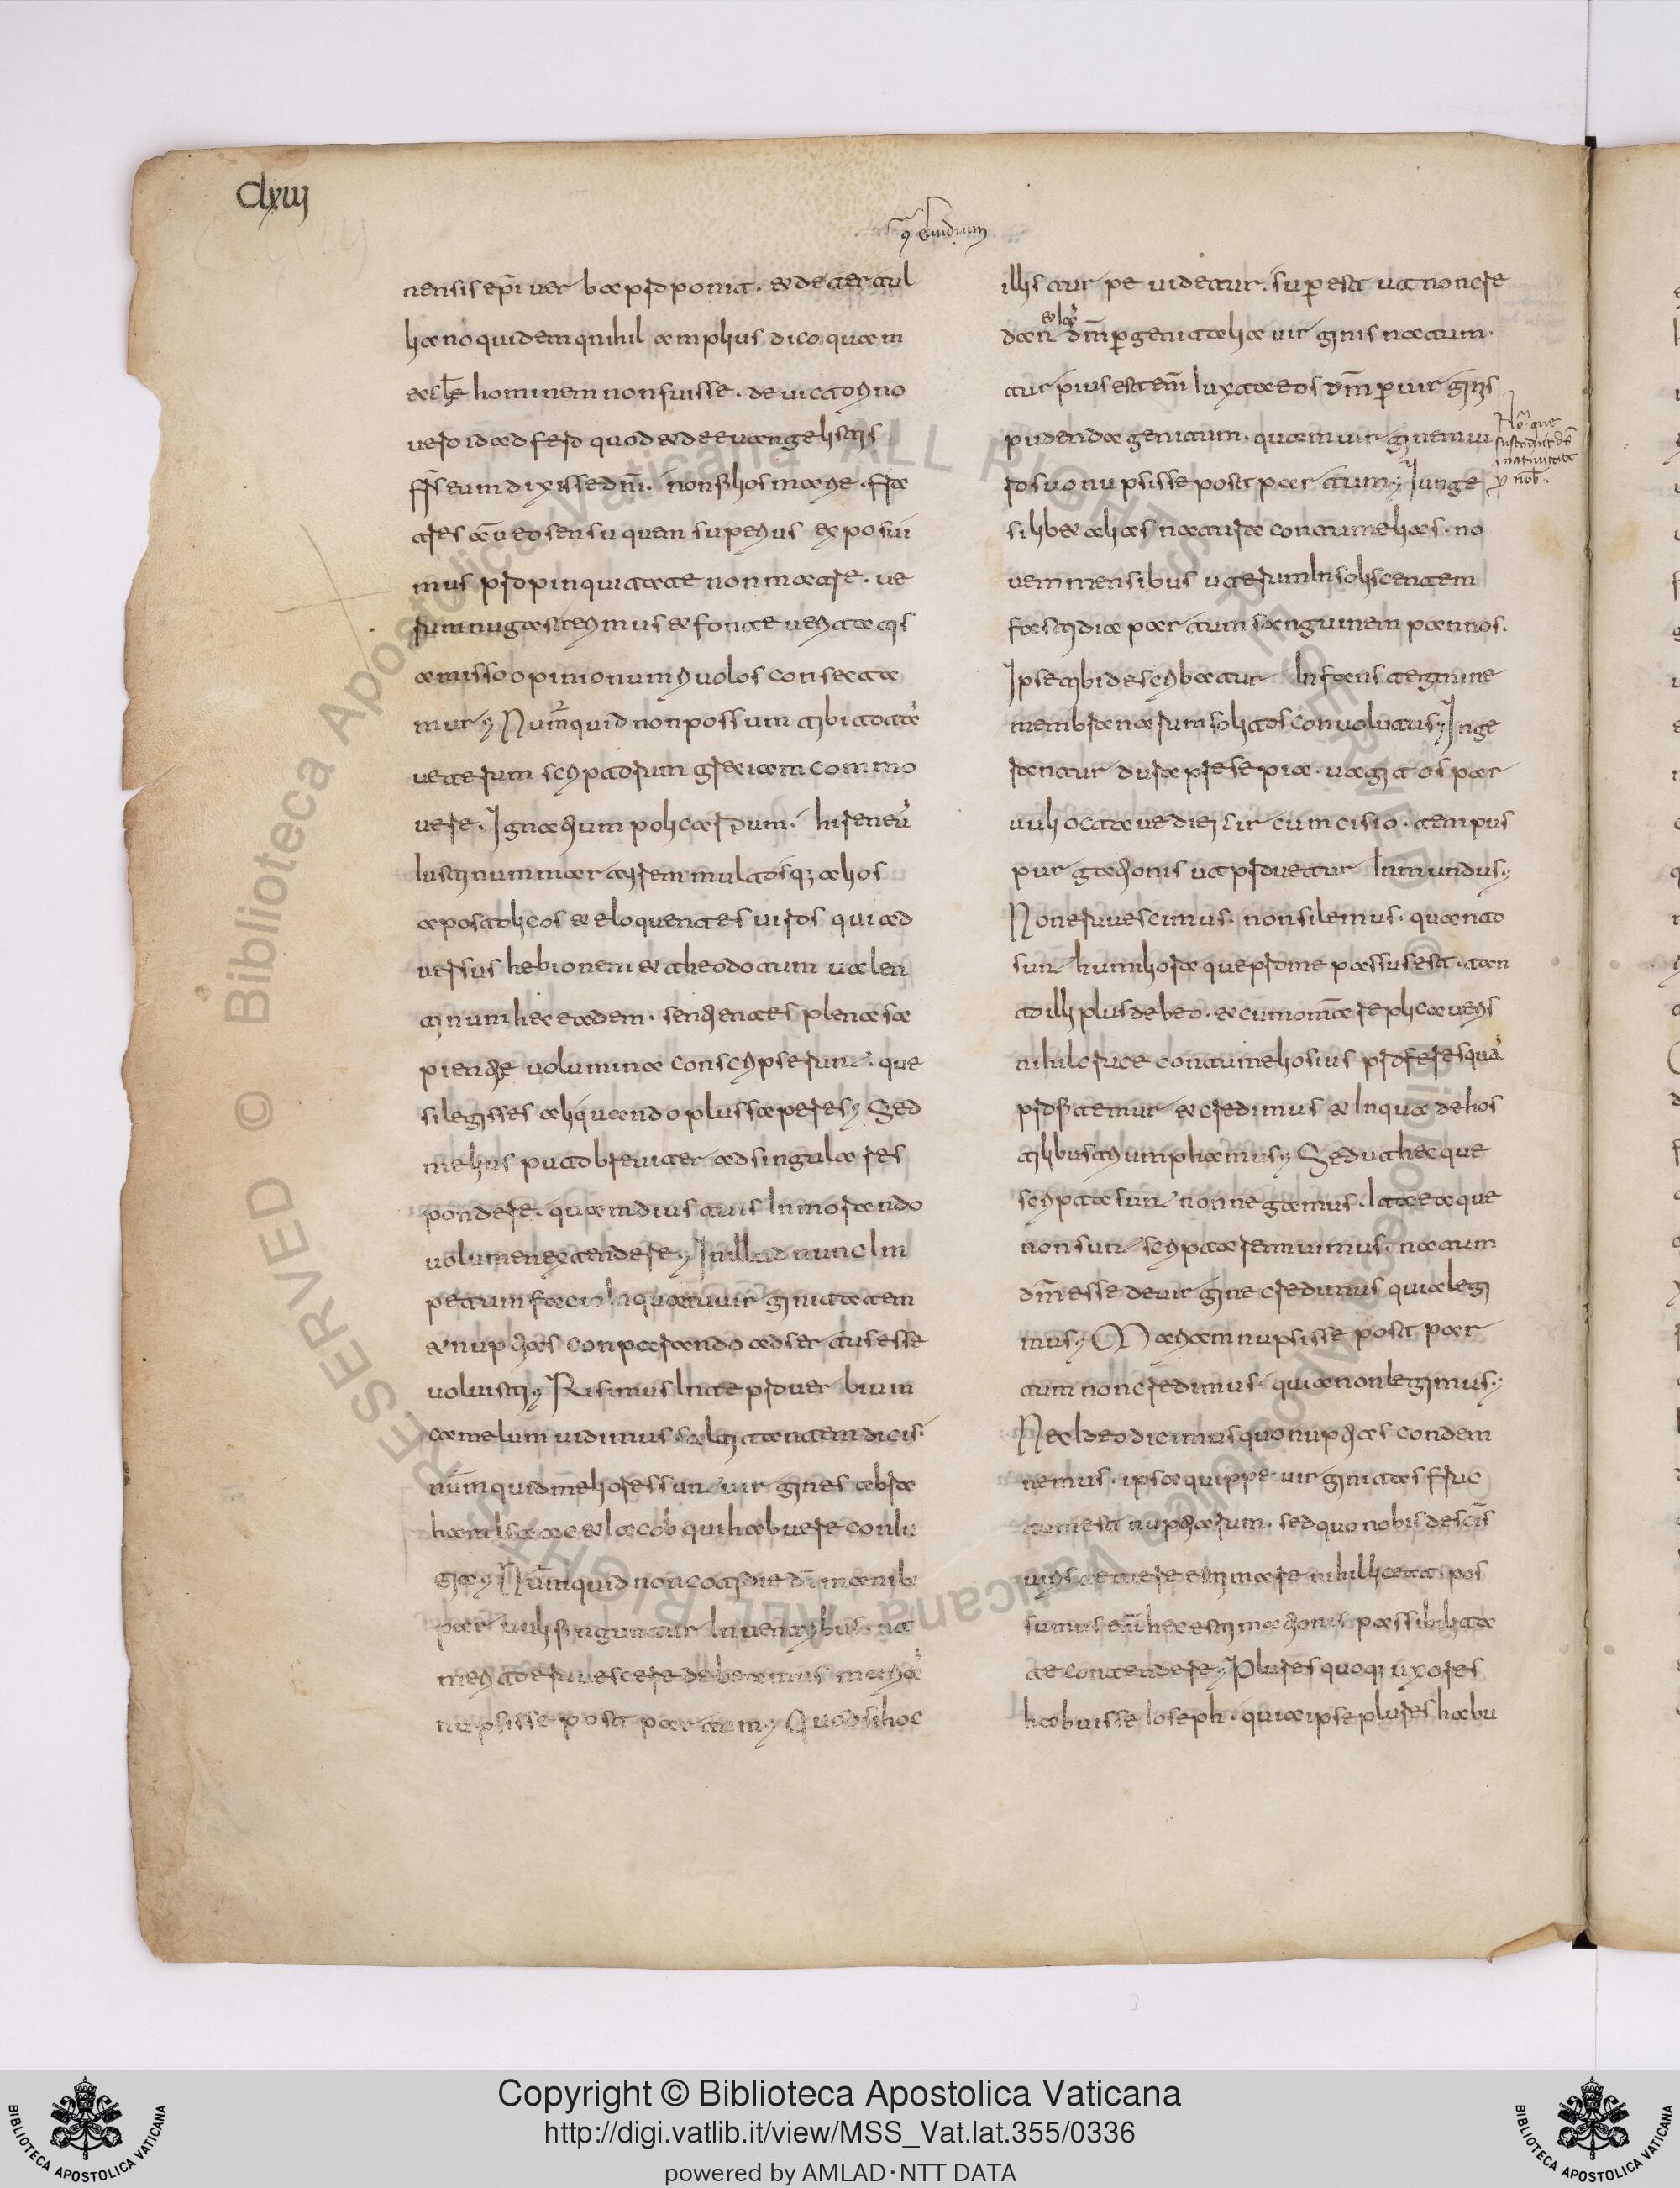 Clxiiij
nensis epi uerba proponit. & de tertul
liano quidem nihil amplius dico quam
eccle hominem non fuisse. de uictorino
uero id adfero quod & de euangelistis
frs eum dixisse dni. non filios mariae. fra
tres autem eo sensu quem superius exposui
mus propinquitate non natura. ue
rum nugas terimus & fonte ueritatis
amisso opinionum riuolos consecta
mur; Numquid non possum tibi tota
ueterum scriptorum seriem commo
uere. Ignatium policarpum. hireneu
iustinum martyrem multosq; alios
apostolicos & eloquentes uiros qui ad
uersus hebionem & theodotum ualen
tinum hec eadem. sentientes plena sa
pientiae uolumina conscripserunt. que
si legisses aliquando plus saperes; Sed
melius puto breuiter ad singula res
pondere. quam diutius inmorando
uolumen extendere; In illud nunc im
petum facio in quo tu uirginitatem
& nuptias conparando adsertus esse
uoluisti; Risimus in te prouerbium
camelum uidimus saltantem dicis.
numquid meliores sunt uirgines abra
ham isaac & iacob qui habuere coniu
gia; Numquid non cotidie di manib;
paruuli finguntur in uentribus. ut
merito erubescere debeamus maria
nupsisse post partum; Quod si hoc
illis turpe uidetur. superest ut non cre
dant & ia dm per genitalia uirginis natum.
turpius est eni iuxta eos dm per uirginis
pudenda genitum. quam uirginem ui
ro suo nupsisse post partum; Iunge
si libet alias naturae contumelias. no
uem mensibus uterum insoliscentem
fastidia partum sanguinem pannos.
Ipse tibi describatur infans tegmine
membranarum solitos conuolutus; Inge
rantur dura presepia. uagitos par
uuli octaue diei circumcisio. tempus
purgationis ut probetur inmundus;
Non erubescimus. non silemus. quanto
sunt humiliora que pro me passus est. tan
to illi plus debeo. & cum omnia replicaueris
nihil cruce contumeliosius proferes qua
profitemur & credimus & in qua de hos
tilibus triumphamus; Sed ut hec que
scripta sunt non negamus. ita ea que
non sunt scripta rennuimus. natum
dm esse de uirgine credimus quia legi
mus; Mariam nupsisse post par
tum non credimus. quia non legimus;
Nec ideo dicimus quo nuptias condem
nemus. ipsa quippe uirginitas fruc
tum est nuptiarum. sed quo nobis de scis
uiris temere estimare nihil liceat. pos
sumus eni hec estimationis possibilita
te contendere; Plures quoq; uxores
habuisse ioseph. quia ipse plures habu
Copyright © Biblioteca Apostolica Vaticana
http://digi.vatlib.it/view/MSS_Vat.lat.355/0336
powered by AMLAD·NTT DATA
BIBLIOTECA APOSTOLICA VATICANA
BIBLIOTECA APOSTOLICA VATICANA